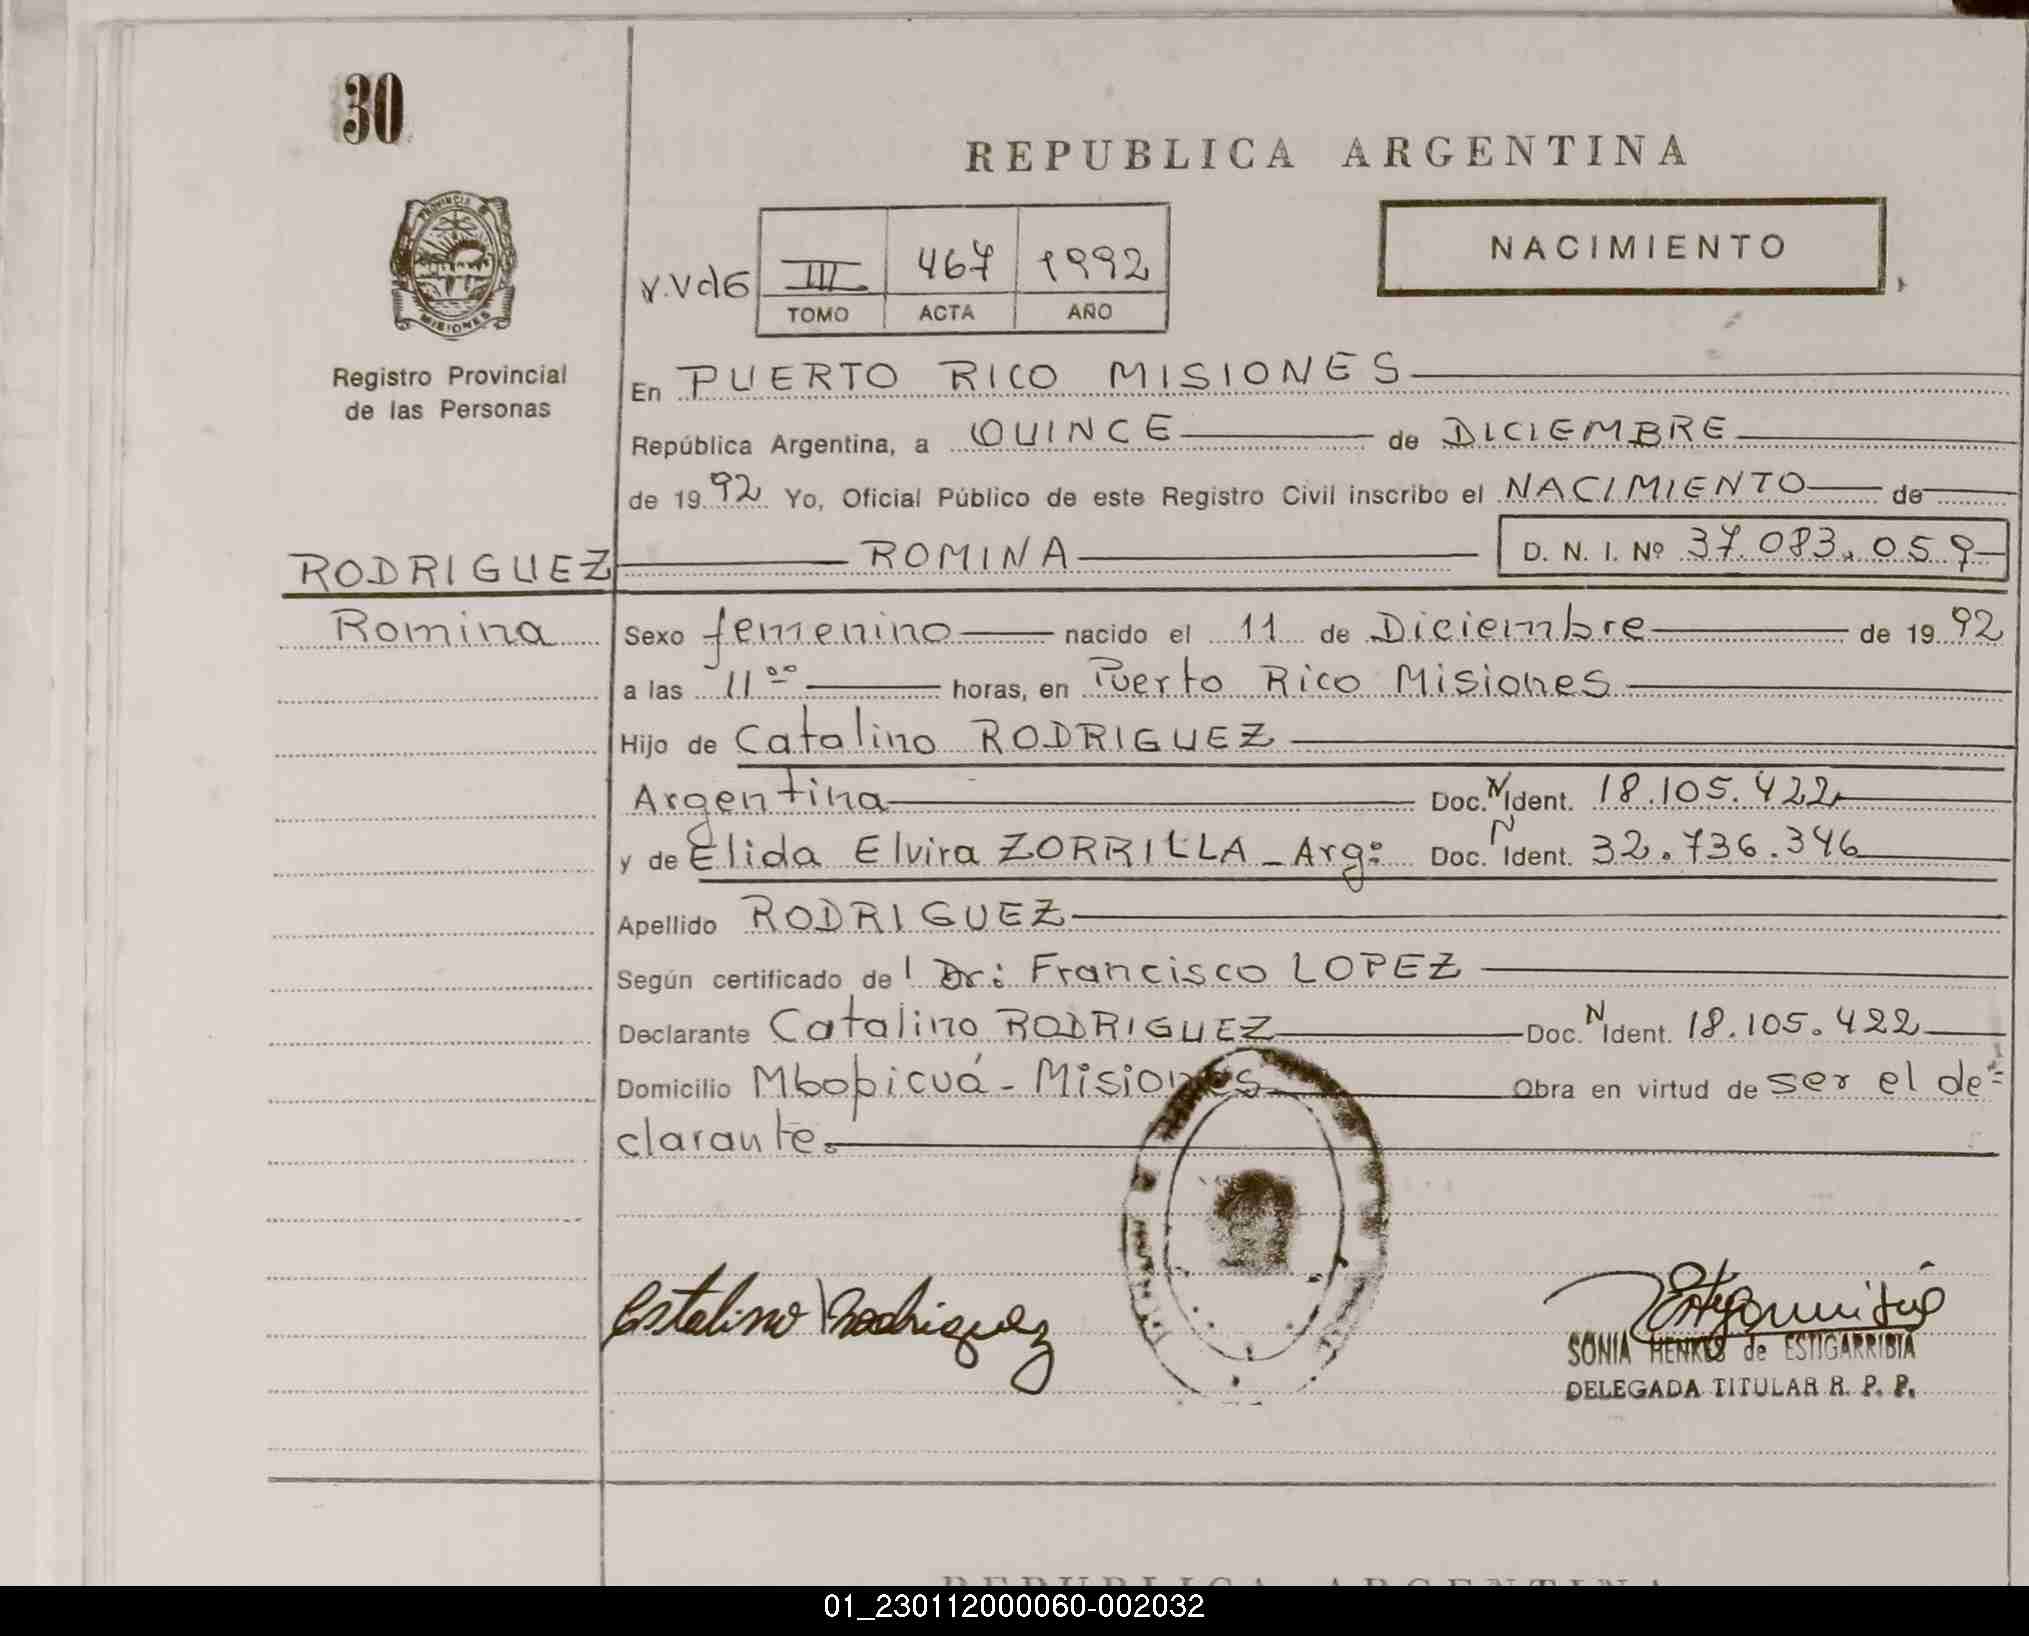 30
REPUBLICA ARGENTINA
NACIMIENTO
III 467 1992
TOMO ACTA AÑO
PROVINCIA D
MISIONES
Registro Provincial
de las Personas
En PUERTO RICO MISIONES
República Argentina, a QUINCE de DICIEMBRE
de 1992 Yo, Oficial Público de este Registro Civil inscribo el NACIMIENTO de
RODRIGUEZ ROMINA D. N. I. Nº 37.083.059
Romina
Sexo femenino nacido el 11 de Diciembre de 1992
a las 11 00 horas, en Puerto Rico Misiones
Hijo de Catalino RODRIGUEZ
Argentina Doc. N Ident. 18.105.422
y de Elida Elvira ZORRILLA - Arg: Doc. N Ident. 32.736.346
Apellido RODRIGUEZ
Según certificado de l Dr: Francisco LOPEZ
Declarante Catalino RODRIGUEZ Doc. N Ident. 18.105.422
Domicilio Mbopicuá - Misiones Obra en virtud de ser el de=
clarante.
Catalino Rodriguez
SONIA HENKES de ESTIGARRIBIA
DELEGADA TITULAR R. P. P.
REPUBLICA ARGENTINA
01_230112000060-002032